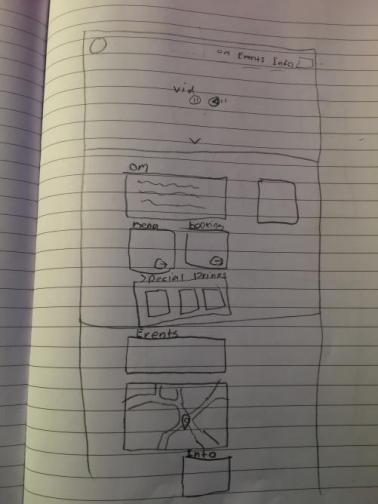 om Events Info
vid
om
menu booking
Special Drinks
Events
Info